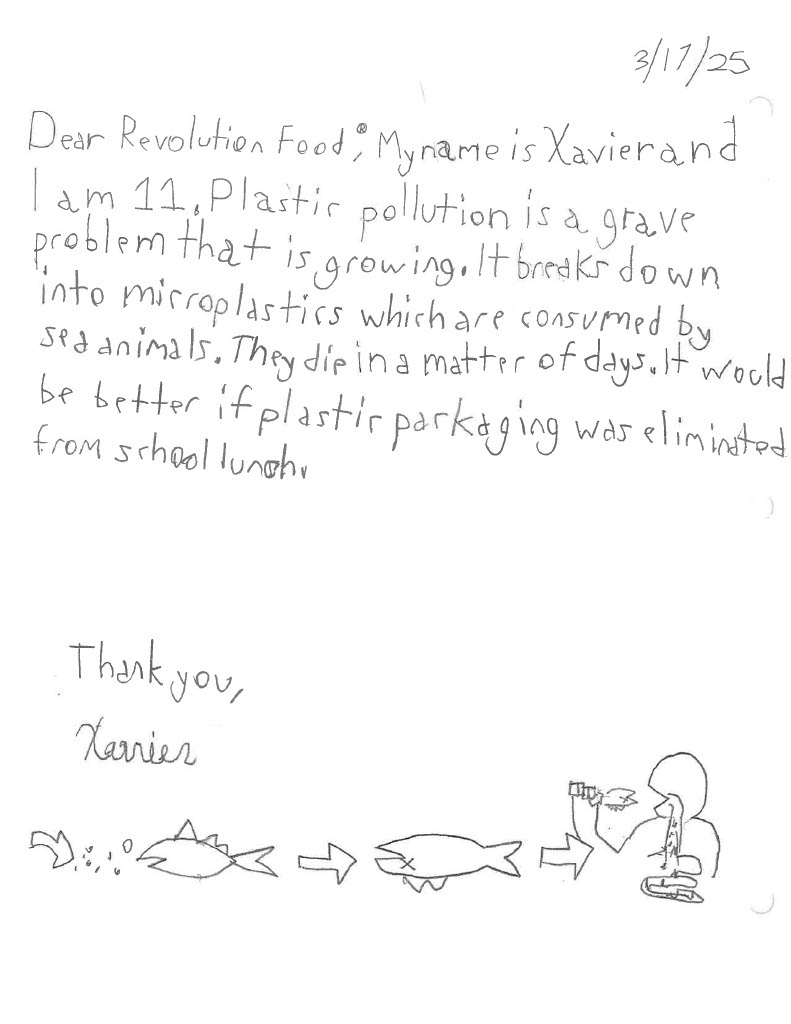 3/17/25
Dear Revolution Food,® My name is Xavier and
I am 11. Plastic pollution is a grave
problem that is growing. It breaks down
into microplastics which are consumed by
sea animals. They die in a matter of days. It would
be better if plastic packaging was eliminated
from school lunch.
Thank you,
Xavier